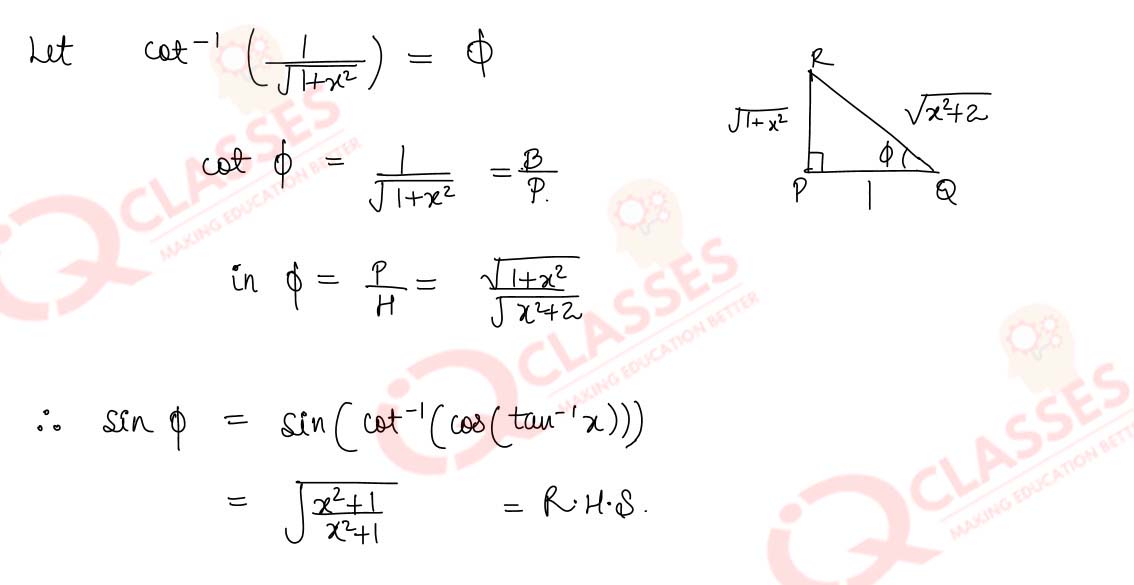 Let cot⁻¹(1/√(1+x²)) = ϕ
cot ϕ = 1/√(1+x²) = B/P.
in ϕ = P/H = √(1+x²)/√(x²+2)
∴ sin ϕ = sin(cot⁻¹(cos(tan⁻¹x)))
= √((x²+1)/(x²+1)) = R.H.S.
R
√(1+x²) √(x²+2)
ϕ
P 1 Q
IQ CLASSES
MAKING EDUCATION BETTER
IQ CLASSES
MAKING EDUCATION BETTER
IQ CLASSES
MAKING EDUCATION BETTER